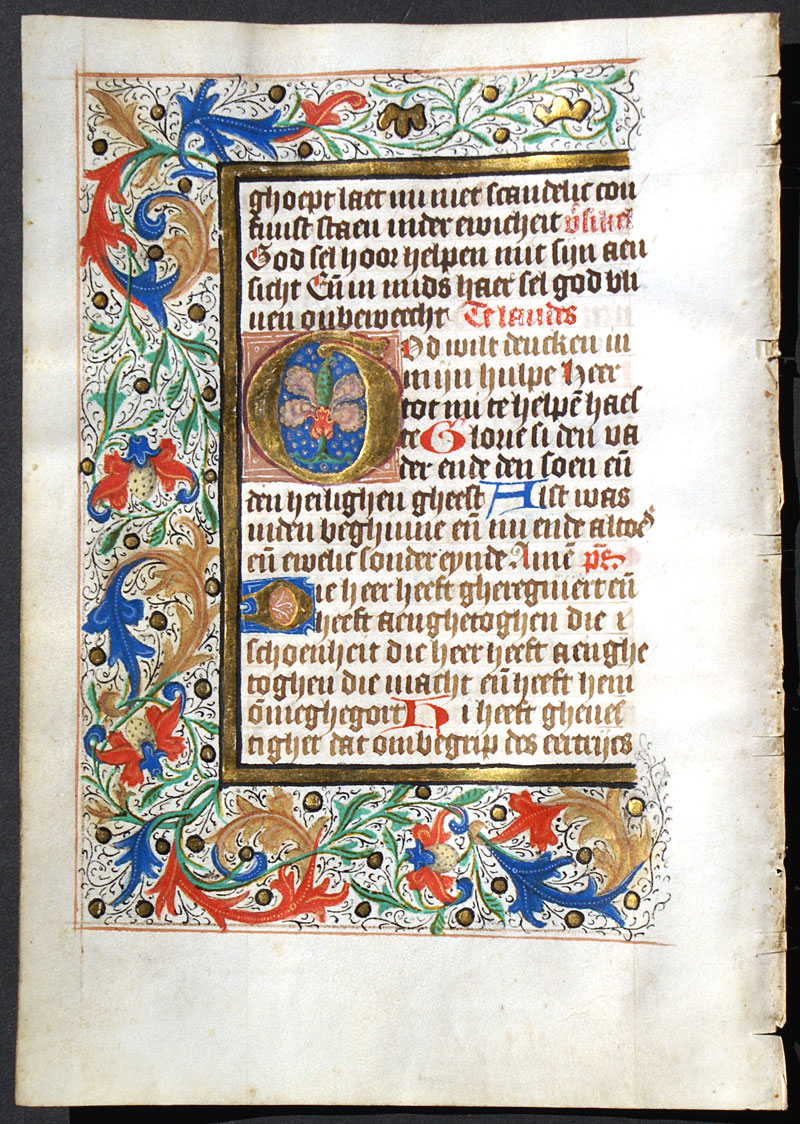 ghoept laet mi niet scandelic con
fuust staen inder ewicheit v̄sikel
God sel hoor helpen mit sijn aen
sicht Eñ in mids haer sel god bli
uen onbeweecht Te laudes
God wilt dencken in
mijn hulpe Heer
tot mi te helpē haes
te Glorie si den va
der ende den soen eñ
den heilighen gheest Alst was
inden beghinne eñ nu ende altoes
eñ ewelic sonder eynde Amē ps̄
Die heer heeft gheregniert eñ
heeft aenghetoghen die
schoenheit die heer heeft aenghe
toghen die macht eñ heeft hem
ōmeghegort Hi heeft gheues
tighet dat ombegrip des eertrijcs